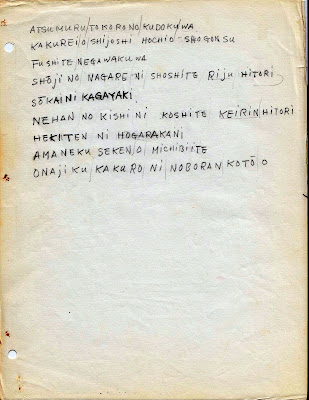 ATSUMURU/TOKORO NO/KUDOKU/WA
KAKUREI/O/SHIJOSHI HOCHIO-SHOGONSU
FUSHITE NEGAWAKUWA
SHŌJI NO NAGARE NI SHOSHITE RIJU HITORI
SŌKAI NI KAGAYAKI
NEHAN NO KISHI NI KOSHITE KEIRIN HITORI
HEKITEN NI HOGARAKANI
AMANEKU SEKENJO MICHIBIITE
ONAJIKU KAKURO NI NOBORAN KOTO O